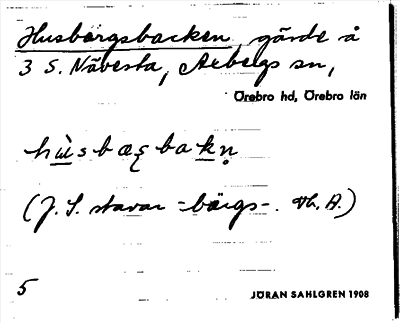 Husbärgsbacken, gärde å
3 S. Nävesta, Axbergs sn,
Örebro hd, Örebro län
hùsbæꞔbakn̥
(J. S. stavar -bärgs-. Vh. A.)
5
JÖRAN SAHLGREN 1908